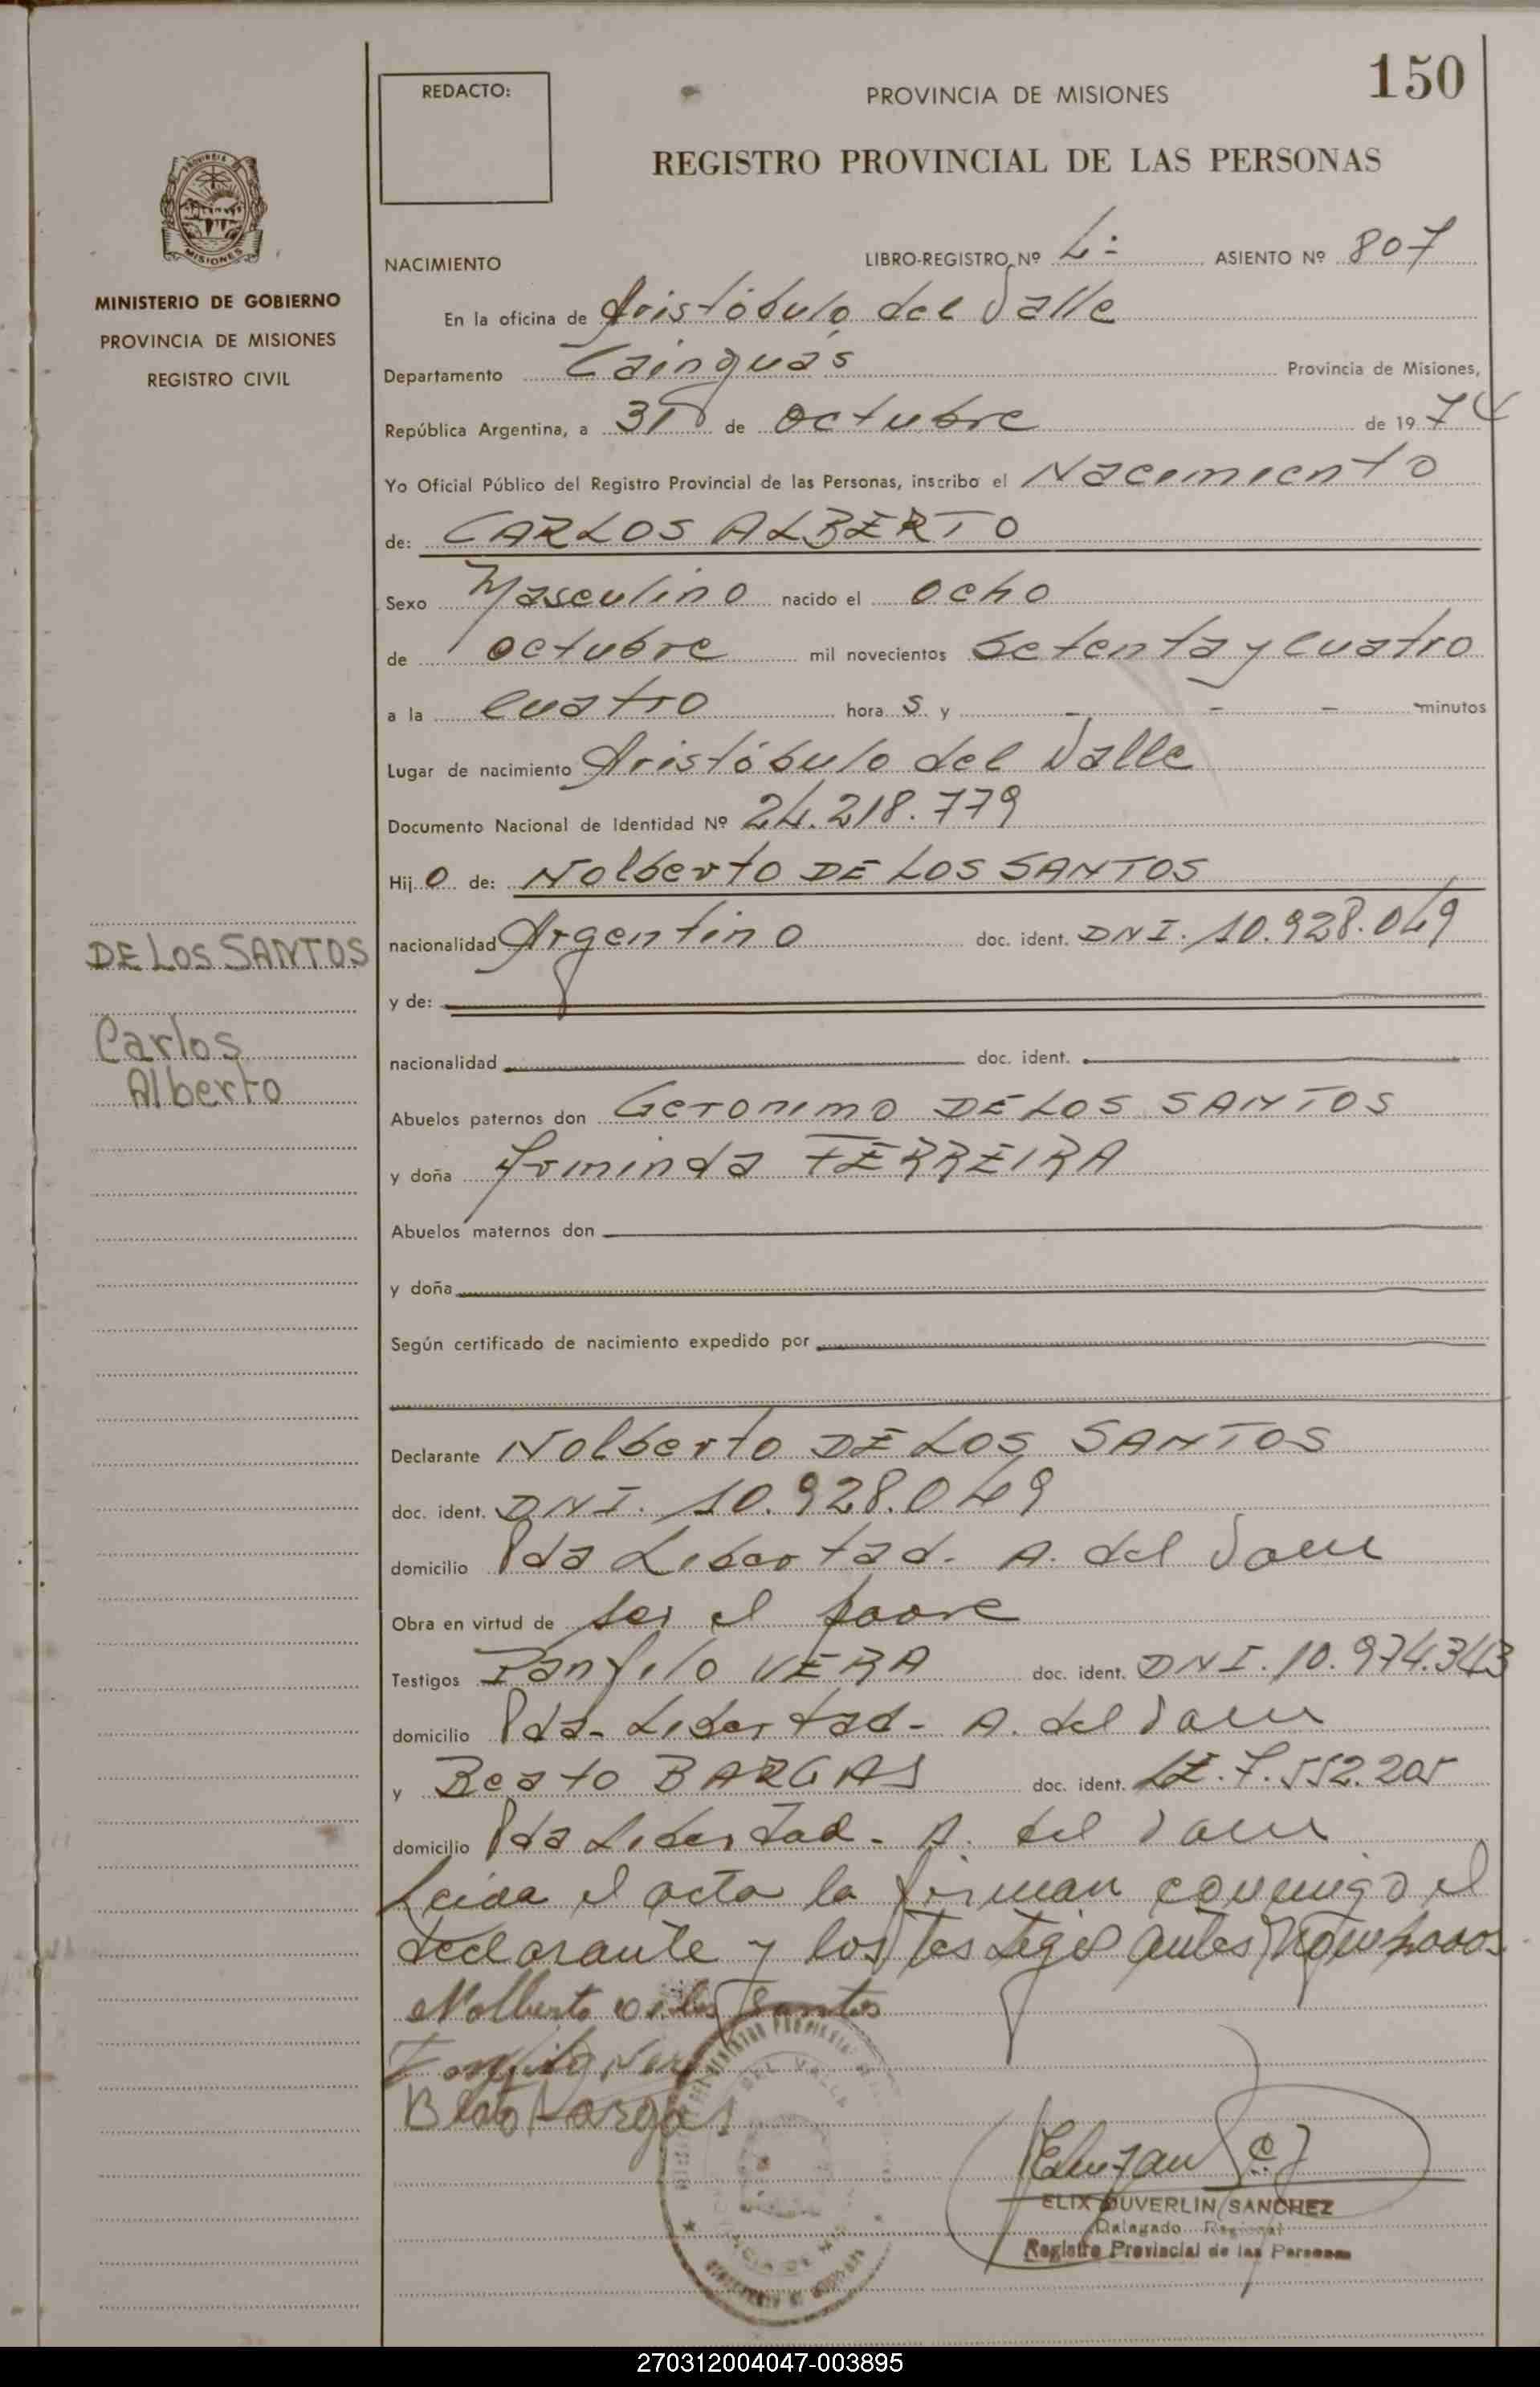 150
REDACTO:
PROVINCIA DE MISIONES
REGISTRO PROVINCIAL DE LAS PERSONAS
MISIONES
MINISTERIO DE GOBIERNO
PROVINCIA DE MISIONES
REGISTRO CIVIL
NACIMIENTO LIBRO-REGISTRO Nº 4: ASIENTO Nº 807
En la oficina de Aristóbulo del Valle
Departamento Cainguás Provincia de Misiones,
República Argentina, a 31 de octubre de 1974
Yo Oficial Público del Registro Provincial de las Personas, inscribo el Nacimiento
de: CARLOS ALBERTO
Sexo Masculino nacido el ocho
de octubre mil novecientos setenta y cuatro
a la cuatro hora s y - - - minutos
Lugar de nacimiento Aristóbulo del Valle
Documento Nacional de Identidad Nº 24.218.779
Hij o de: Nolberto DE LOS SANTOS
nacionalidad Argentino doc. ident. DNI. 10.928.049
y de:
nacionalidad doc. ident.
DE LOS SANTOS
Carlos
Alberto
Abuelos paternos don Geronimo DE LOS SANTOS
y doña Arminda FERREIRA
Abuelos maternos don
y doña
Según certificado de nacimiento expedido por
Declarante Nolberto DE LOS SANTOS
doc. ident. DNI. 10.928.049
domicilio Pda Libertad. A. del Valle
Obra en virtud de ser el padre
Testigos Panfilo VERA doc. ident. DNI. 10.974.343
domicilio Pda- Libertad- A. del Valle
y Beato BARGAS doc. ident. LE. 7.552.205
domicilio Pda Libertad- A. del Valle
Leida el acta la firman conmigo el
declarante y los testigos antes nombrados.
Nolberto de los Santos
Panfilo Vera
Beato Vargas
ELIX DUVERLIN SANCHEZ
Delegado Regional
Registro Provincial de las Personas
270312004047-003895